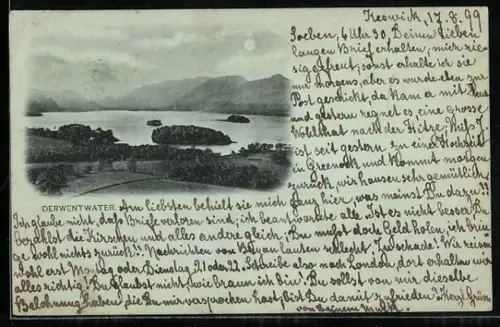 Keswick, 17.8.99
Soeben, 6 Uhr 30, Deinen lieben
langen Brief erhalten, mich rie-
sig gefreut; sonst erhalte ich sie
nur morgens, aber es wurde eben zur
Post geschickt, da kam er mit
und gestern regnet es, eine grosse
Wohlthat nach der Hitze; Miss J.
ist seit gestern zu einer Hochzeit
in Greenock und kommt morgen
zurück, wir hausen sehr gemütlich
DERWENTWATER.
Am liebsten behielt sie mich ganz hier, was meinst Du dazu??
Ich glaube nicht, daß Briefe verloren sind, ich beantwortete alle. Ist es nicht besser Du
bezahlst die Kirschen und alles andere gleich; Du mußt doch Geld holen, ich brin-
ge wohl nichts zurück! Nachrichten von lauten schlecht. Wir reisen
wohl erst Montag oder Dienstag 21. oder 22. Schreibe also nach London, dort erhalten wir
alles richtig! Du glaubst nicht wie braun ich bin! Du sollst von mir dieselbe
Belohnung haben, die Du mir versprochen hast, bist Du damit zufrieden? Herzl. Grüsse
von Deinem